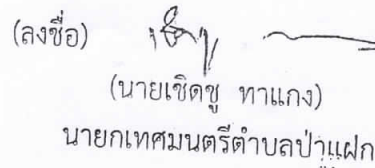 (ลงชื่อ)
(นายเชิดชู ทาแกง)
นายกเทศมนตรีตำบลป่าแฝก